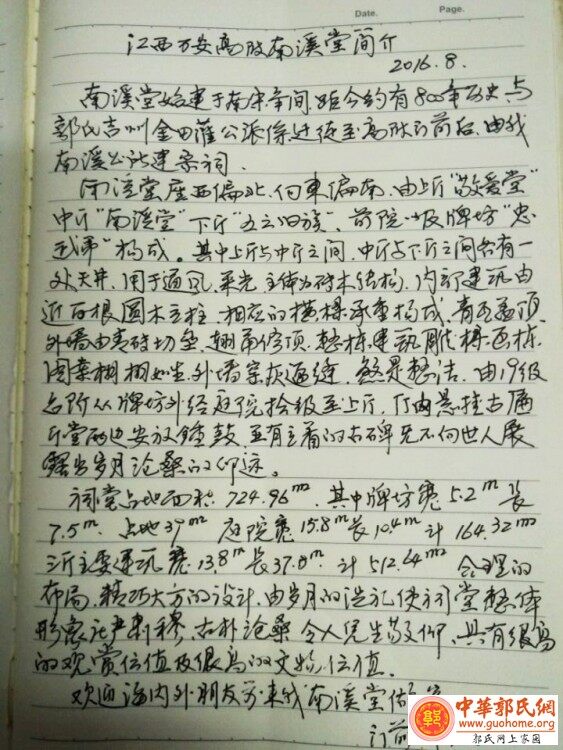 Date. Page.
江西万安高陂南溪堂简介
2016.8.
南溪堂始建于南宋年间，距今约有800年历史，与
郭氏吉州金田灌公派係迁徙至高陂，前后，由我
南溪公派建宗祠．
南溪堂座西偏北，向東偏南，由上厅"敬爱堂"
中厅"南溪堂"下厅"九立旧族"，前院 牌坊"忠
"构成。其中上厅与中厅之间，中厅与下厅之间各有一
处天井，用于通风，采光，主体为砖木结构，内部建筑由
近百根圆木立柱，相应的横樑承重构成，青瓦盖顶，
外墙由青砖切垒，翘角修顶，整栋建筑雕樑画栋，
图案栩栩如生，外墙 缝，煞是整洁，由19级
台阶从牌坊外经庭院拾级至上厅，厅内悬挂古匾
厅堂两边安放钟鼓，至有主看的古碑无不向世人展
露出岁月沧桑的印迹。
祠堂占地面积 724.96m²，其中牌坊宽 5.2m 长
7.5m，占地 39m² 庭院宽 15.8m 长 10.4m 计 164.32m²
三厅主要建筑宽 13.8m 长 37.8m，计 512.64m² 合理的
布局，精巧大方的设计，由岁月的洗礼使祠堂整体
形象庄严肃穆，古朴沧桑，令人凭生敬仰，具有很高
的观赏价值及很高的文物价值．
欢迎海内外朋友前来我南溪堂
前
中華郭氏網
www.guohome.org
郭氏网上家园